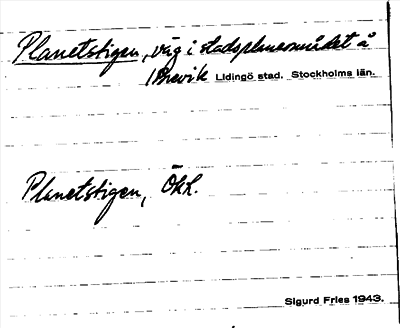 Planetstigen, väg i stadsplaneområdet å
Brevik Lidingö stad. Stockholms län.
Planetstigen, Ökk.
Sigurd Fries 1943.